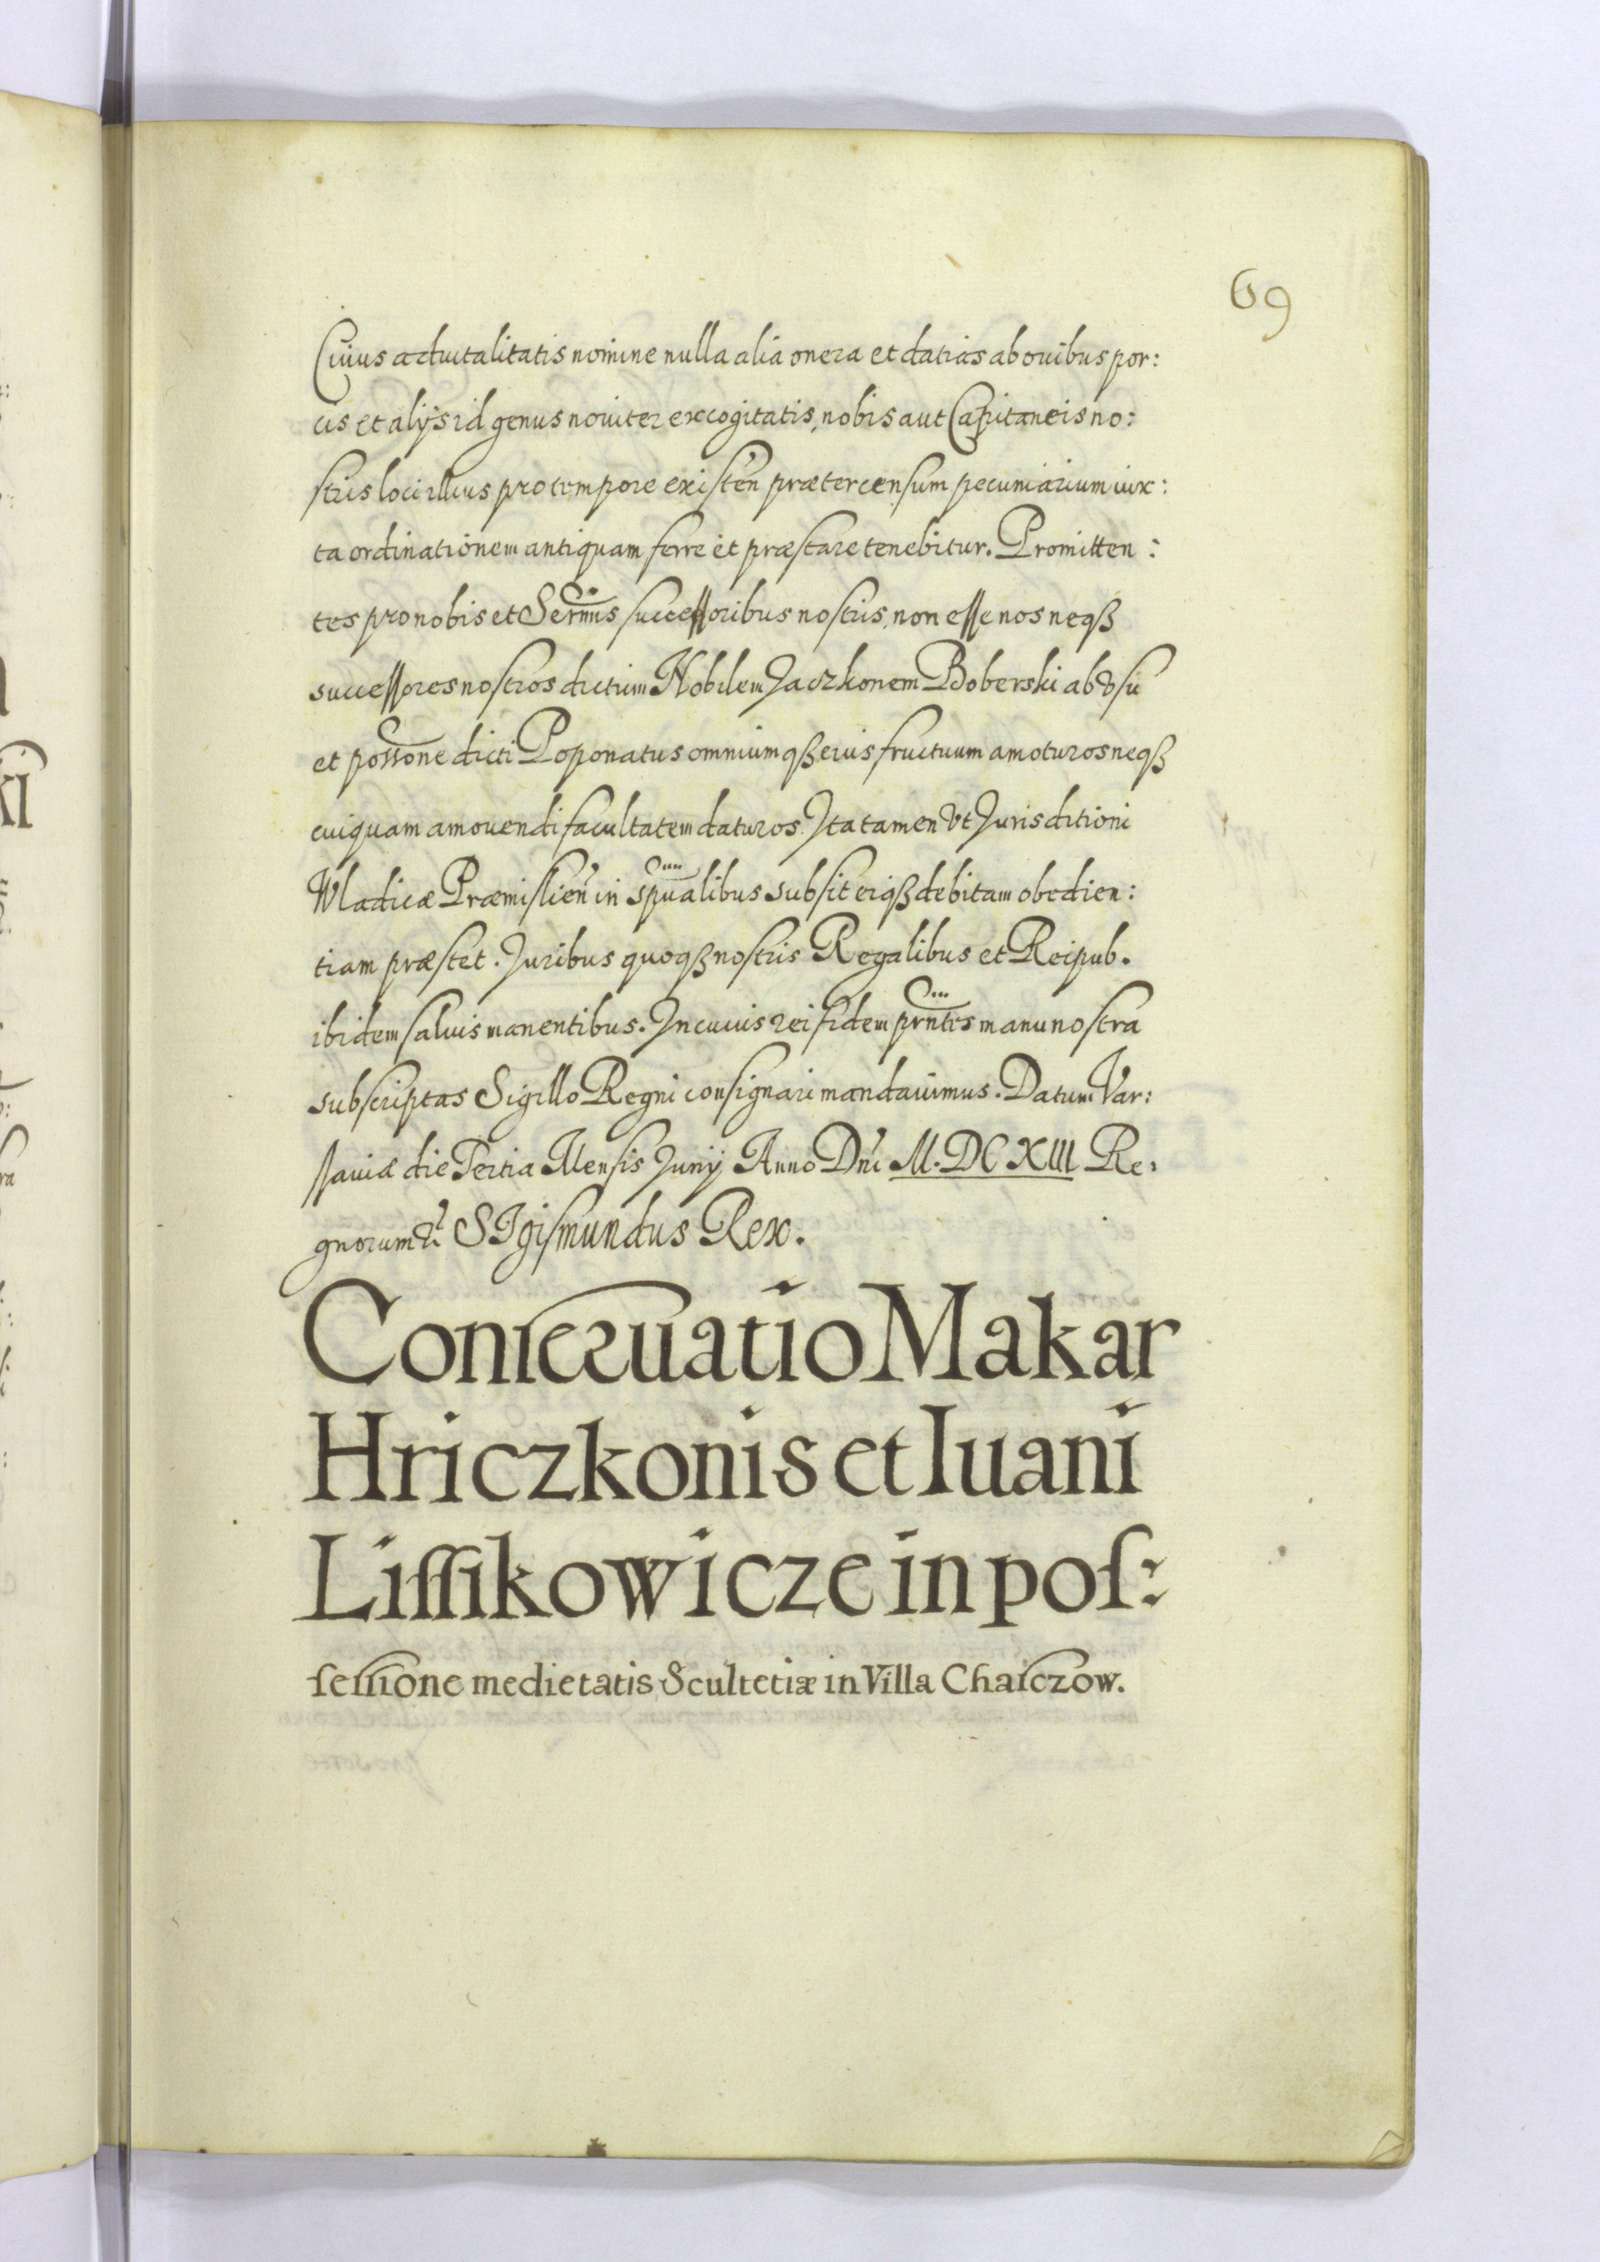 69
Cuius aduitalitatis nomine nulla alia onera et datias ab ouibus por:
cis et alijs id genus nouiter excogitatis, nobis aut Capitaneis no:
stris loci illius pro tempore existen̄ præter censum pecuniarium iux:
ta ordinationem antiquam ferre et præstare tenebitur. Promitten:
tes pro nobis et Sermis successoribus nostris, non esse nos neqꝫ
successores nostros dictum Nobilem Jaczkonem Boberski ab vsu
et possone dicti Poponatus omniumqꝫ eius fructuum amoturos neqꝫ
cuiquam amouendi facultatem daturos. Ita tamen vt Jurisditioni
Wladicæ Præmislien̄ in spualibus subsit eiqꝫ debitam obedien:
tiam præstet. Juribus quoqꝫ nostris Regalibus et Reipub.
ibidem saluis manentibus. In cuius rei fidem prntes manu nostra
subscriptas Sigillo Regni consignari mandauimus. Datum Var:
sauiæ die Tertia Mensis Junij Anno Dni M.DCXIII Re:
gnorum &c SIgismundus Rex.
Conseruatio Makar
Hriczkonis et Iuani
Liſſikowicze in poſ:
ſeſſione medietatis Scultetiæ in Villa Chaſczow.